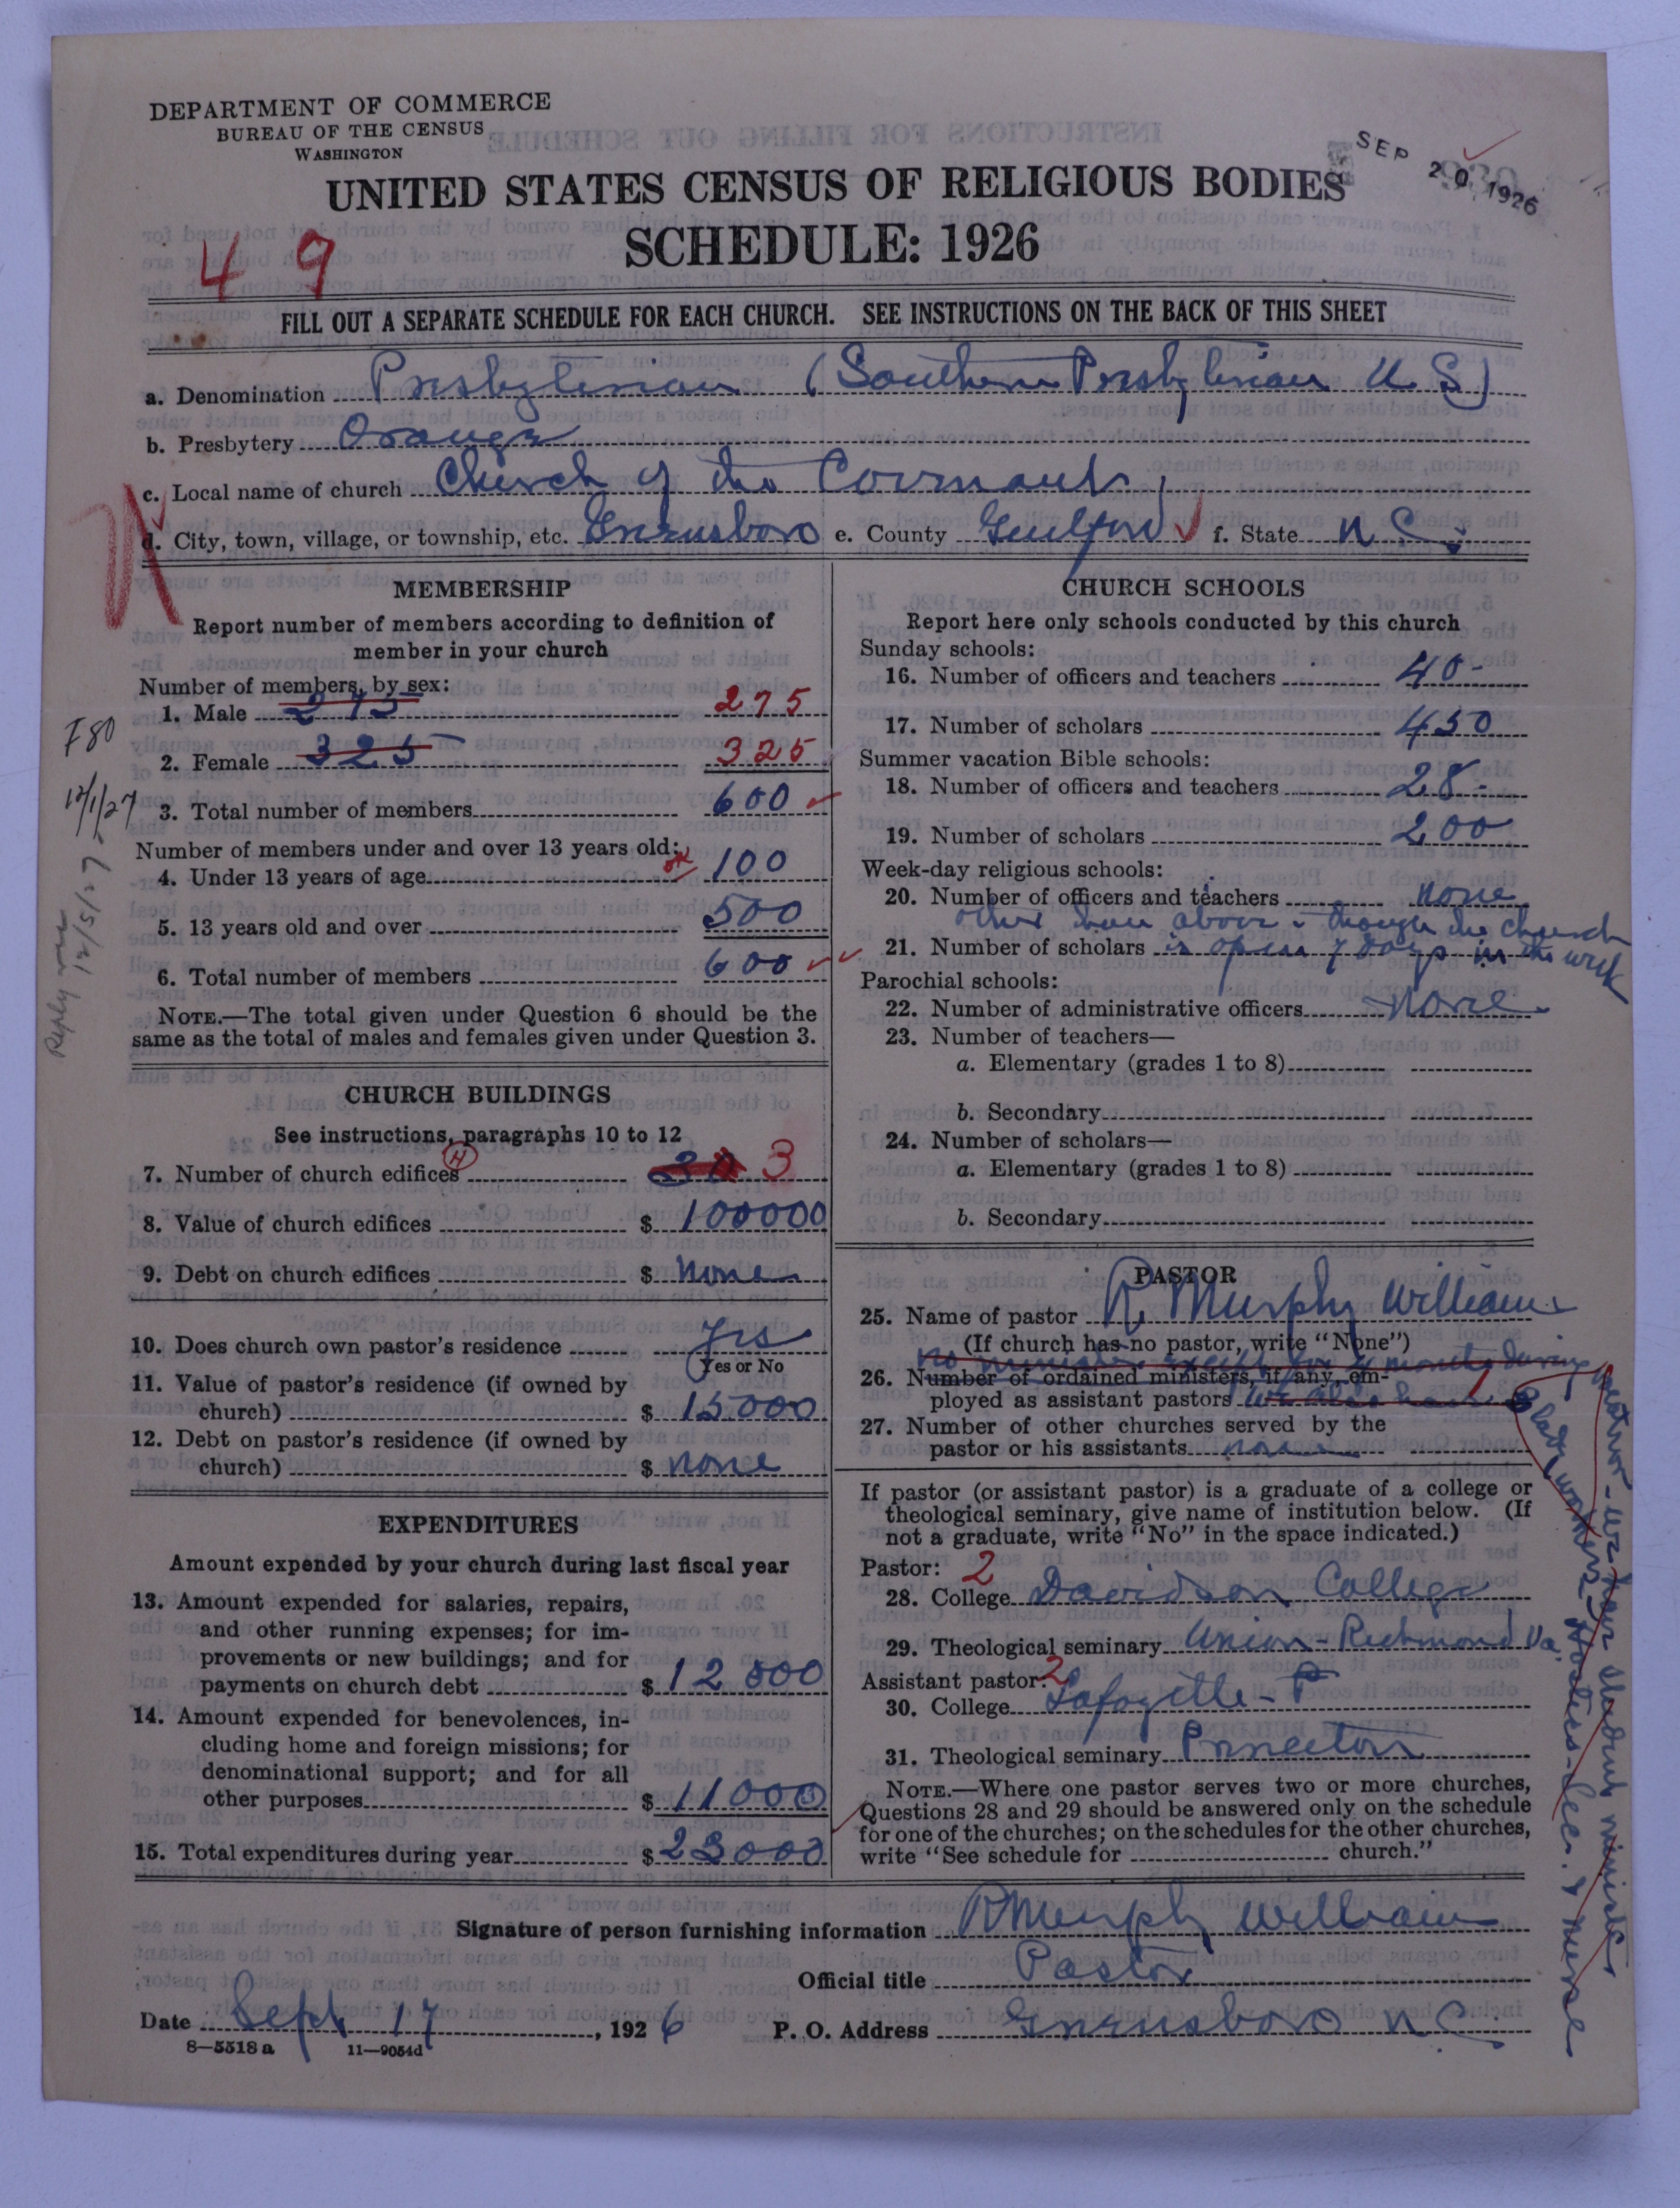 DEPARTMENT OF COMMERCE
BUREAU OF THE CENSUS
WASHINGTON
SEP 20 1926
UNITED STATES CENSUS OF RELIGIOUS BODIES
SCHEDULE: 1926
49
FILL OUT A SEPARATE SCHEDULE FOR EACH CHURCH. SEE INSTRUCTIONS ON THE BACK OF THIS SHEET
a. Denomination Presbyterian (Southern Presbyterian U. S.)
b. Presbytery Orange
c. Local name of church Church of the Covenant
d. City, town, village, or township, etc. Greensboro e. County Guilford f. State N. C.
MEMBERSHIP
Report number of members according to definition of
member in your church
Number of members, by sex:
1. Male 275 275
2. Female 325 325
3. Total number of members 600
Number of members under and over 13 years old:
4. Under 13 years of age 100
5. 13 years old and over 500
6. Total number of members 600
NOTE.—The total given under Question 6 should be the
same as the total of males and females given under Question 3.
F80
12/1/27
Reply
12/5/27
CHURCH BUILDINGS
See instructions, paragraphs 10 to 12
7. Number of church edifices H 3
8. Value of church edifices $ 100000
9. Debt on church edifices $ none
10. Does church own pastor's residence Yes
(Yes or No
11. Value of pastor's residence (if owned by
church) $ 15000
12. Debt on pastor's residence (if owned by
church) $ none
EXPENDITURES
Amount expended by your church during last fiscal year
13. Amount expended for salaries, repairs,
and other running expenses; for im-
provements or new buildings; and for
payments on church debt $ 12000
14. Amount expended for benevolences, in-
cluding home and foreign missions; for
denominational support; and for all
other purposes $ 11000
15. Total expenditures during year $ 23000
CHURCH SCHOOLS
Report here only schools conducted by this church
Sunday schools:
16. Number of officers and teachers 40-
17. Number of scholars 450
Summer vacation Bible schools:
18. Number of officers and teachers 28-
19. Number of scholars 200
Week-day religious schools:
20. Number of officers and teachers none
other than above - though the church
21. Number of scholars is open 7 days in the week
Parochial schools:
22. Number of administrative officers none
23. Number of teachers—
a. Elementary (grades 1 to 8)
b. Secondary
24. Number of scholars—
a. Elementary (grades 1 to 8)
b. Secondary
PASTOR
25. Name of pastor R. Murphy Williams
(If church has no pastor, write "None")
no minister except for 4 months during
26. Number of ordained ministers, if any, em-
ployed as assistant pastors we also have 1
27. Number of other churches served by the
pastor or his assistants none
If pastor (or assistant pastor) is a graduate of a college or
theological seminary, give name of institution below. (If
not a graduate, write "No" in the space indicated.)
Pastor: 2
28. College Davidson College
29. Theological seminary Union-Richmond Va.
Assistant pastor: 2
30. College Lafayette-P
31. Theological seminary Princeton
NOTE.—Where one pastor serves two or more churches,
Questions 28 and 29 should be answered only on the schedule
for one of the churches; on the schedules for the other churches,
write "See schedule for church."
we have student minister
lady workers Hostess-Secr. & nurse
Signature of person furnishing information R Murphy Williams
Official title Pastor
Date Sept 17, 1926 P. O. Address Greensboro N C
8—5518a 11—9054d